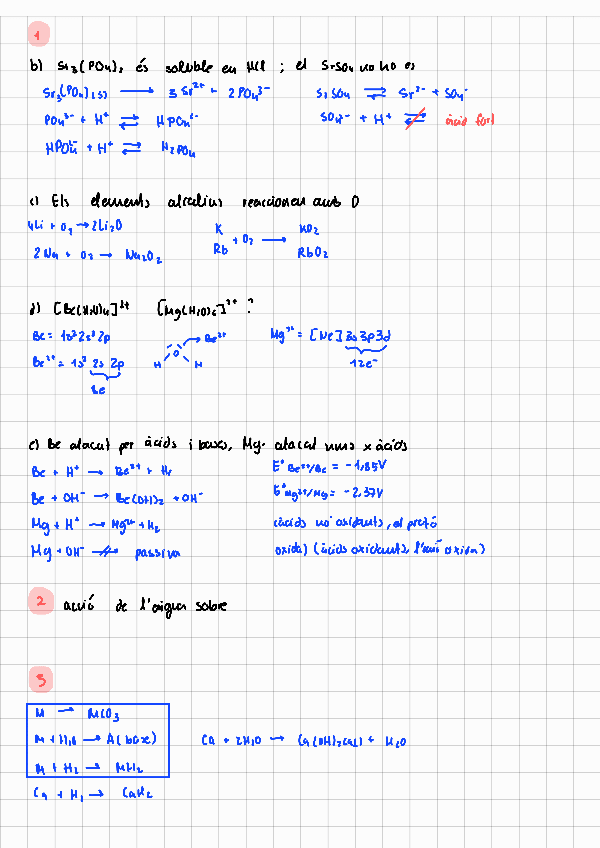 1
b) Sr₃(PO₄)₂ és soluble en HCl ; el SrSO₄ no ho es
Sr₃(PO₄)₂(s) ⟶ 3 Sr²⁺ + 2PO₄³⁻
SrSO₄ ⇄ Sr²⁻ + SO₄⁻
PO₄³⁻ + H⁺ ⇄ HPO₄²⁻
SO₄²⁻ + H⁺ ⇄ àcid fort
HPO₄²⁻ + H⁺ ⇄ H₂PO₄
c) Els elements alcalins reaccionen amb O
4Li + O₂ → 2Li₂O
K
Rb + O₂ ⟶ KO₂
RbO₂
2Na + O₂ → Na₂O₂
d) [Be(H₂O)₄]²⁺ [Mg(H₂O)₆]²⁺ ?
Be = 1s²2s²2p
Be²⁺
O
H H
Mg²⁺ = [Ne] 3s 3p 3d
12e⁻
Be²⁺ = 1s² 2s 2p
8e
e) Be atacat per àcids i bases, Mg atacat només x àcids
Be + H⁺ → Be²⁺ + H₂
E° Be²⁺/Be = -1,85V
Be + OH⁻ → Be(OH)₂ + OH⁻
E° Mg²⁺/Mg = -2,37V
Mg + H⁺ → Mg²⁺ + H₂
(àcids no oxidants, el protó
Mg + OH⁻ ↛ passiva
oxida) (àcids oxidants, l'anió oxida)
2 acció de l'aigua sobre
3
M → MCO₃
M + H₂O → A(base)
Ca + 2H₂O → Ca(OH)₂(aq) + H₂O
M + H₂ → MH₂
Ca + H₂ → CaH₂